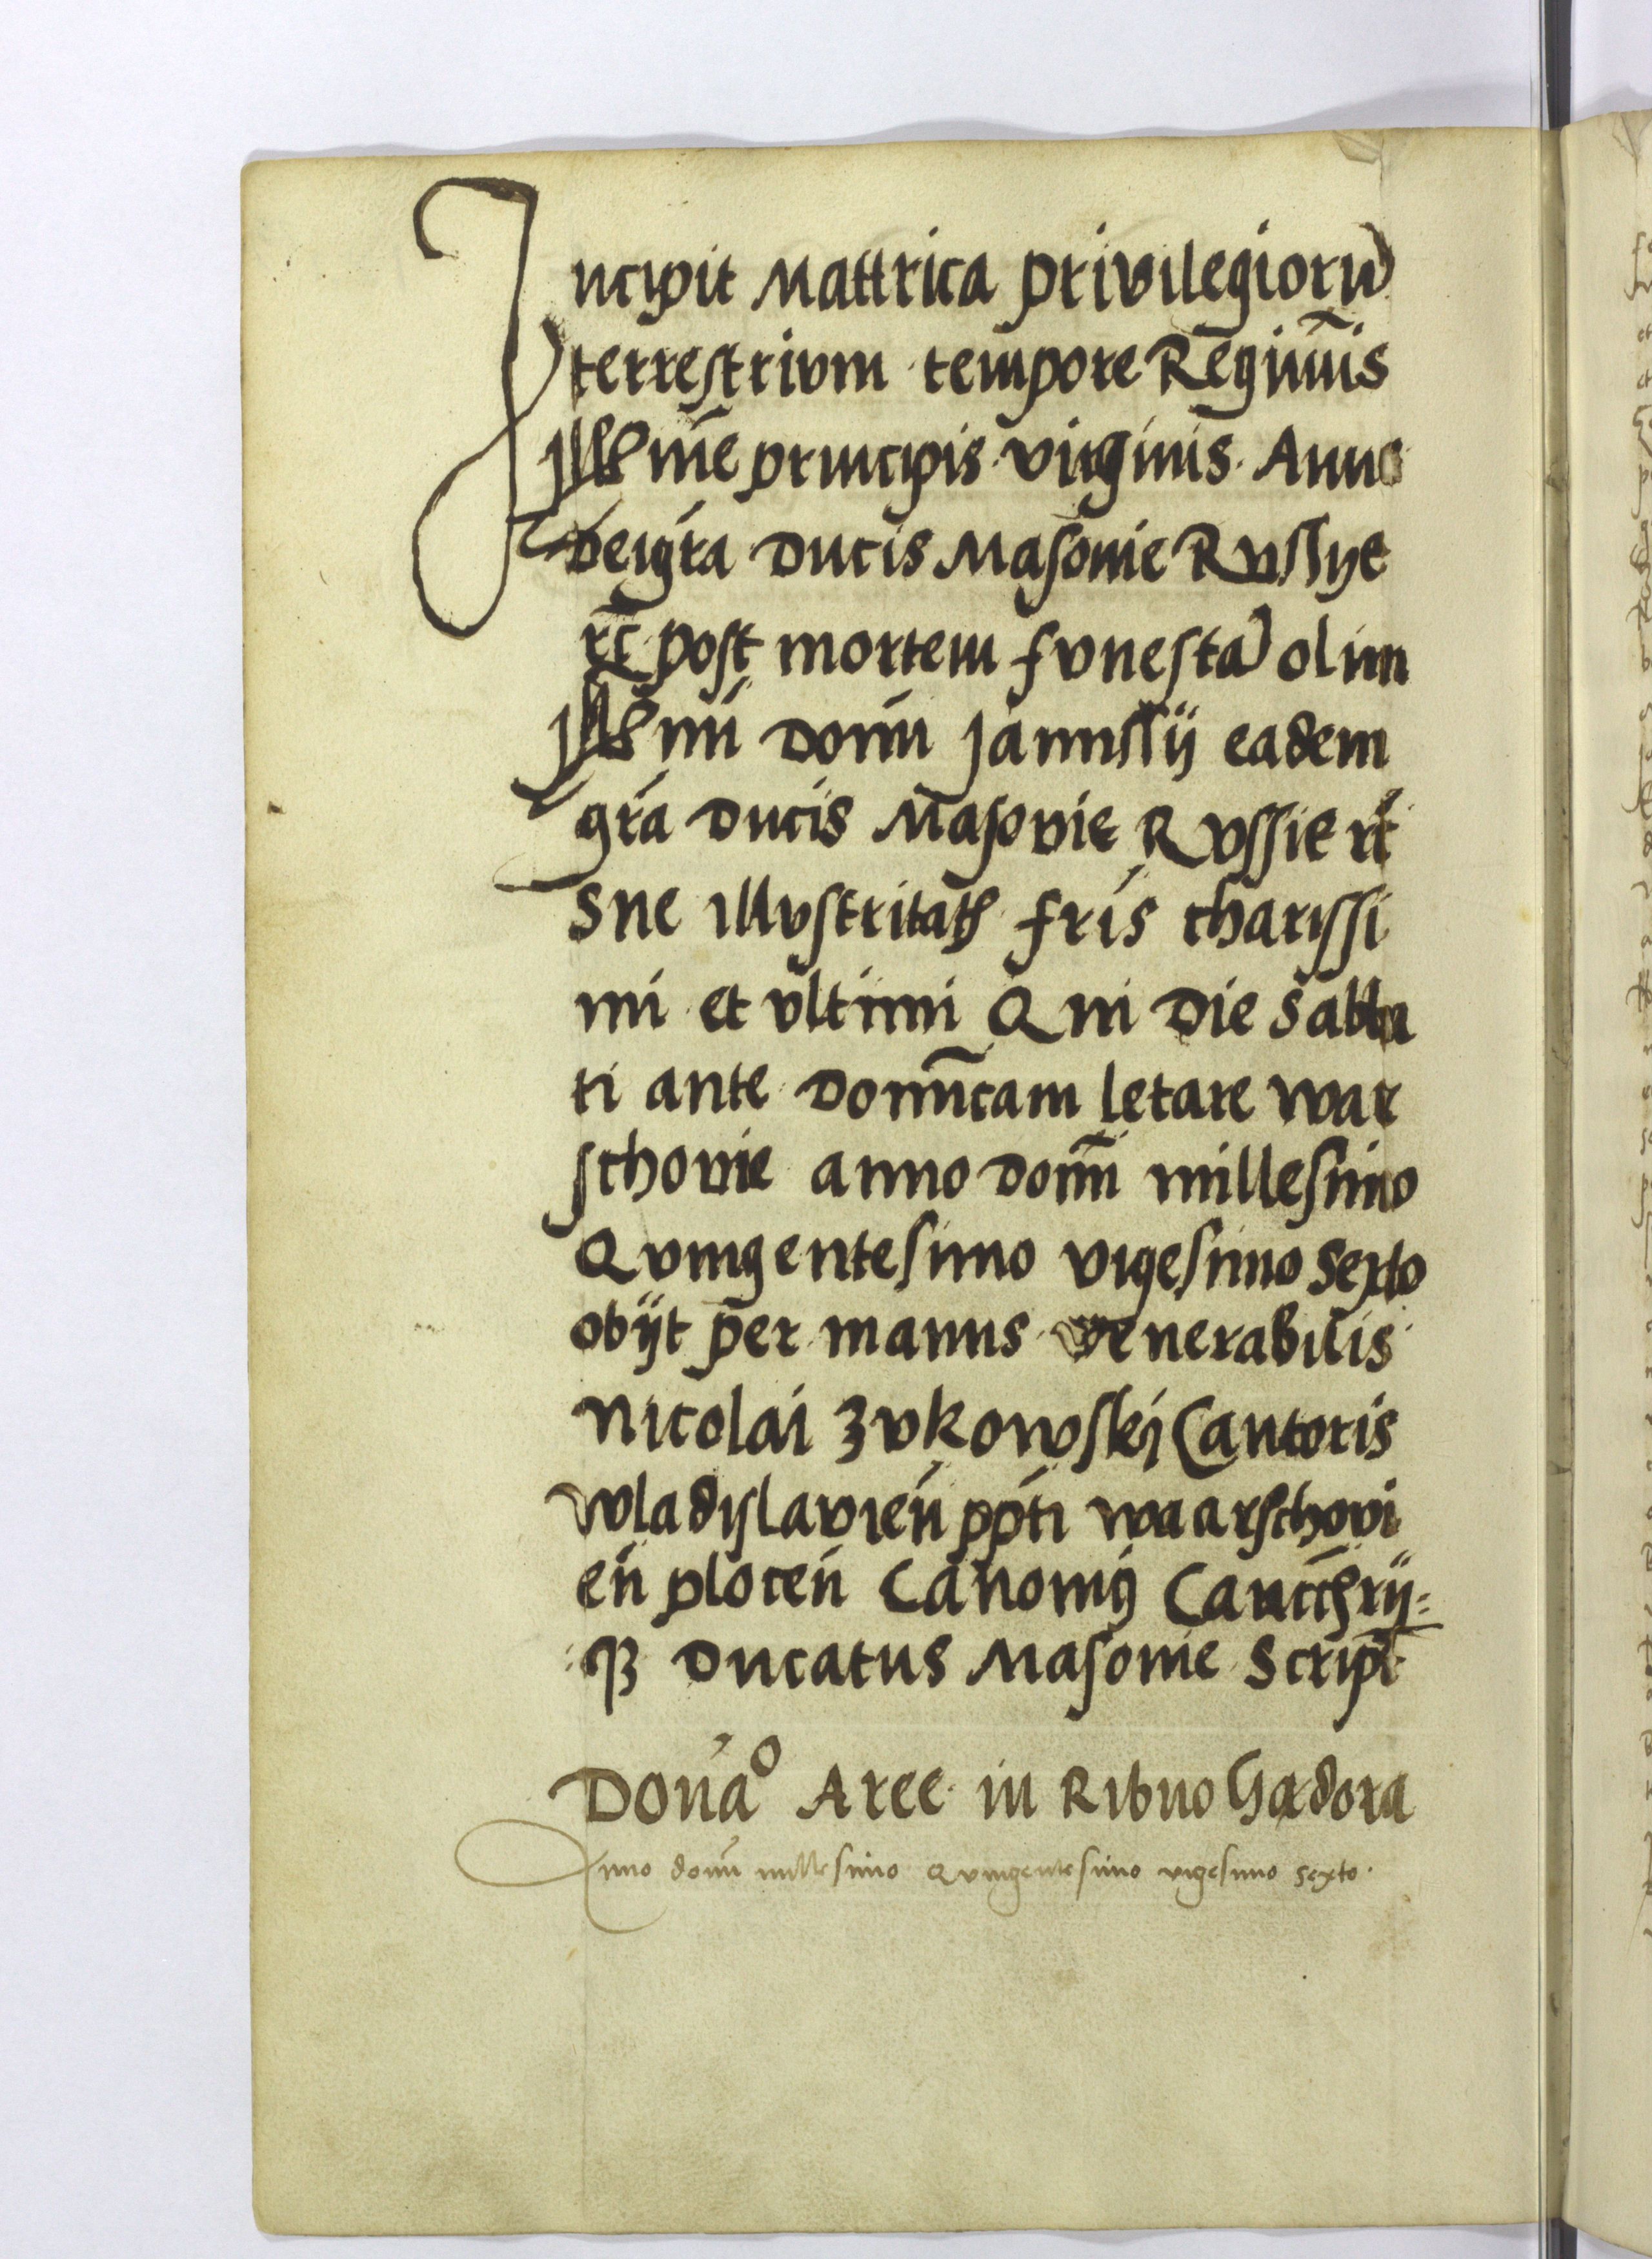 Incipit Mattrica privilegiorū
terrestrivm tempore Regimīis
Illꝰme principis virginis Anne
Dei gra Ducis Masovie Russye
rc̄ post mortem fvnestā olim
Illꝰmi Domi Janussij eadem
gra Ducis Masovie Rvssie rc̄
sue illvstritatꝭ fris charissi
mi et vltimi Qui Die sabba
ti ante Domīcam letare war
schovie anno Domī millesimo
Qvingentesimo vigesimo sexto
obijt per manus venerabilis
Nicolai Zvkowskj Cantoris
wladislavien ppti waarschovi
en plocen Canonicj Cancchrij=
:qꝫ Ducatus Masovie script
Donao Aree in Ribno Gardora
Anno domī millesimo Qvingentesimo vigesimo sexto.